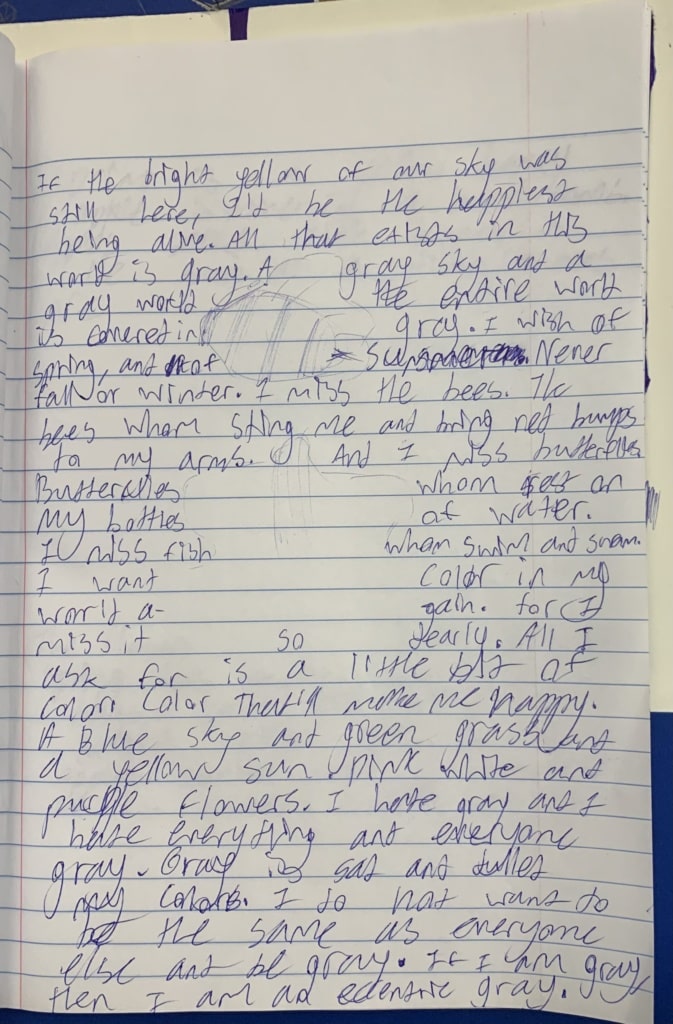 If the bright yellow of our sky was
still here, I'd be the happiest
being alive. All that exists in this
world is gray. A gray sky and a
gray world the entire world
is covered in gray. I wish of
spring, and not
Never
fall or winter. I miss the bees. The
bees whom sting me and bring red bumps
to my arms. And I miss butterflies
Butterflies whom rest on
My bottles of water.
I miss fish whom swim and swam.
I want color in my
world a- gain. for I
miss it so dearly. All I
ask for is a little bit of
color. Color That'll make me happy.
A Blue sky and green grass and
a yellow sun pink white and
purple flowers. I hate gray and I
hate everything and everyone
gray. Gray is sad and dulled
my colors. I do not want to
be the same as everyone
else and be gray. If I am gray
then I am an edentric gray.